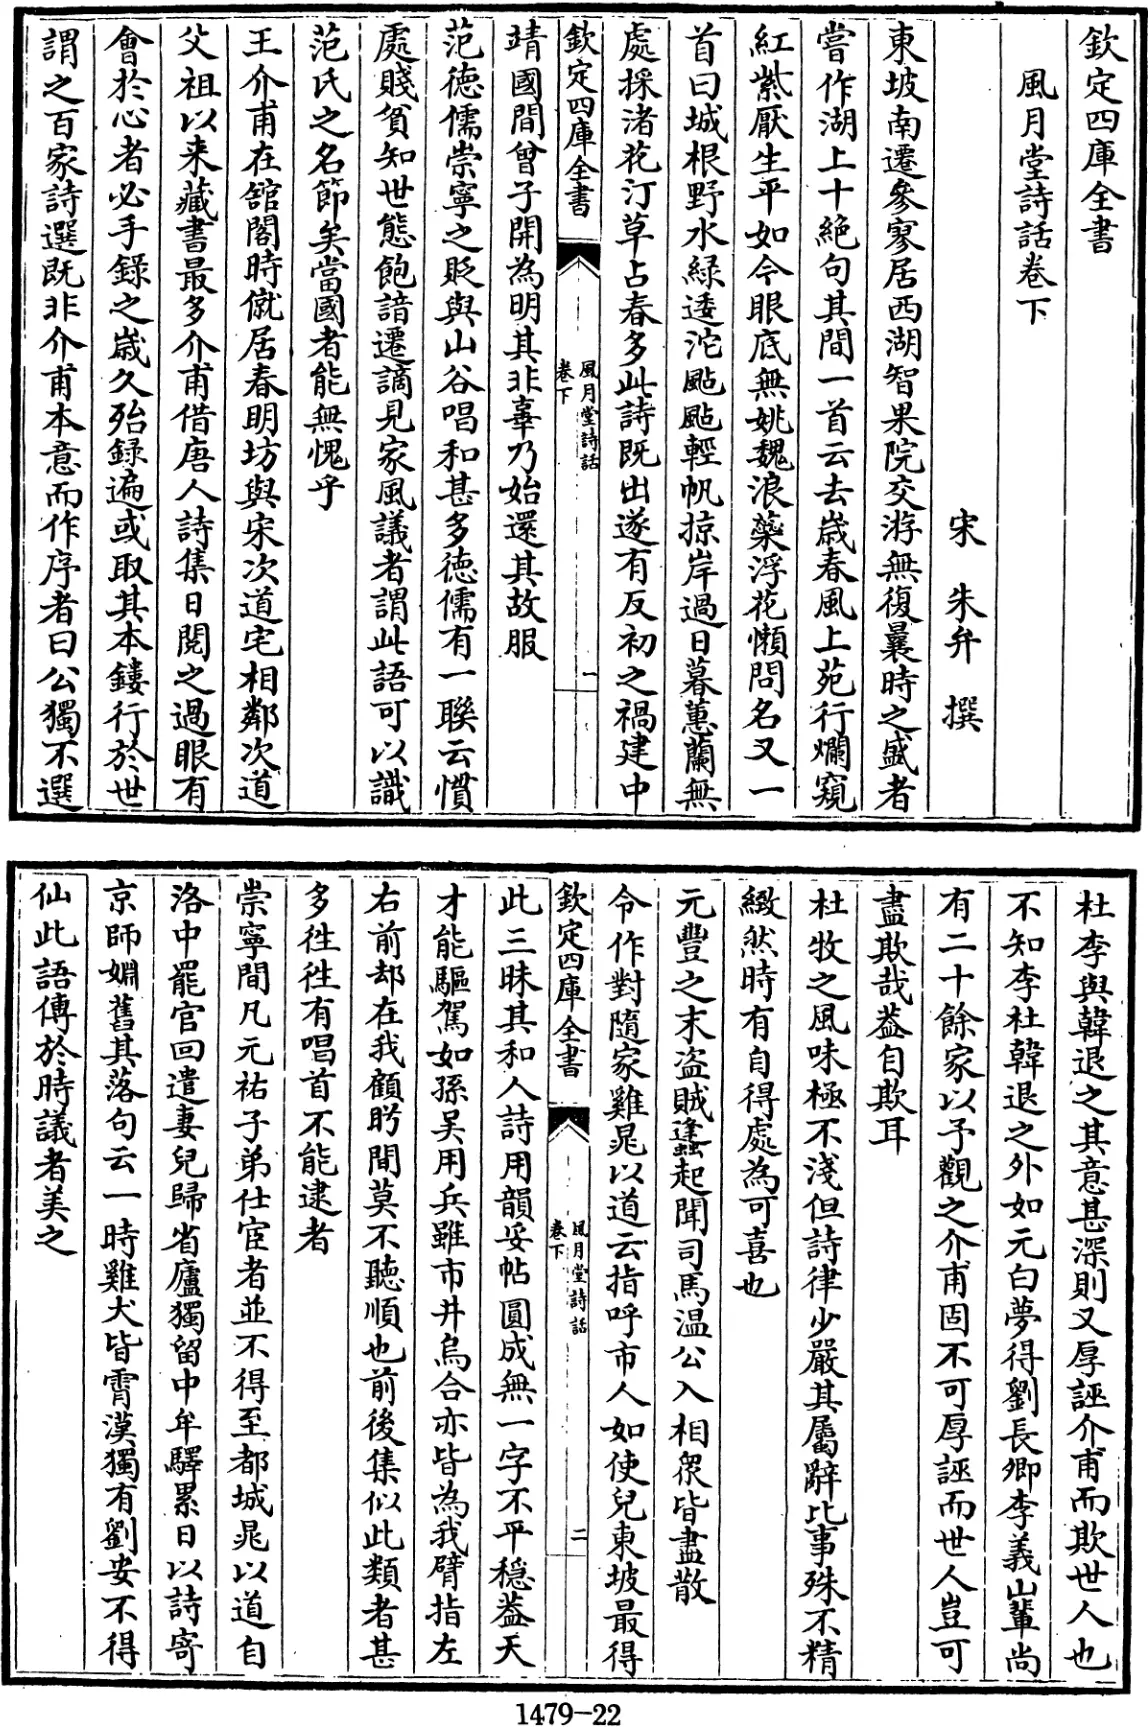 欽定四庫全書
風月堂詩話卷下
宋 朱弁 撰
東坡南遷參寥居西湖智果院交游無復曩時之盛者
嘗作湖上十絶句其間一首云去歲春風上苑行爛窺
紅紫厭生平如今眼底無姚魏浪蘂浮花懶問名又一
首曰城根野水緑逶沱颭颭輕帆掠岸過日暮蕙蘭無
處採渚花汀草占春多此詩既出遂有反初之禍建中
欽定四庫全書
風月堂詩話
卷下
一
靖國間曾子開為明其非辜乃始還其故服
范德儒崇寧之貶與山谷唱和甚多德儒有一聯云慣
處賤貧知世態飽諳遷謫見家風議者謂此語可以識
范氏之名節矣當國者能無愧乎
王介甫在舘閣時僦居春明坊與宋次道宅相鄰次道
父祖以来藏書最多介甫借唐人詩集日閲之過眼有
會於心者必手録之歲久殆録遍或取其本鏤行於世
謂之百家詩選既非介甫本意而作序者曰公獨不選
杜李與韓退之其意甚深則又厚誣介甫而欺世人也
不知李杜韓退之外如元白夢得劉長卿李義山輩尚
有二十餘家以予觀之介甫固不可厚誣而世人豈可
盡欺哉葢自欺耳
杜牧之風味極不淺但詩律少嚴其屬辭比事殊不精
緻然時有自得處為可喜也
元豐之末盗賊蠭起聞司馬温公入相衆皆盡散
令作對隨家雞晁以道云指呼市人如使兒東坡最得
欽定四庫全書
風月堂詩話
卷下
二
此三昧其和人詩用韻妥帖圓成無一字不平穩葢天
才能驅駕如孫吴用兵雖市井烏合亦皆為我臂指左
右前却在我顧盻間莫不聽順也前後集似此類者甚
多徃徃有唱首不能逮者
崇寧間凡元祐子弟仕宦者並不得至都城晁以道自
洛中罷官回遣妻兒歸省廬獨留中牟驛累日以詩寄
京師婣舊其落句云一時雞犬皆霄漢獨有劉安不得
仙此語傳於時議者美之
1479-22